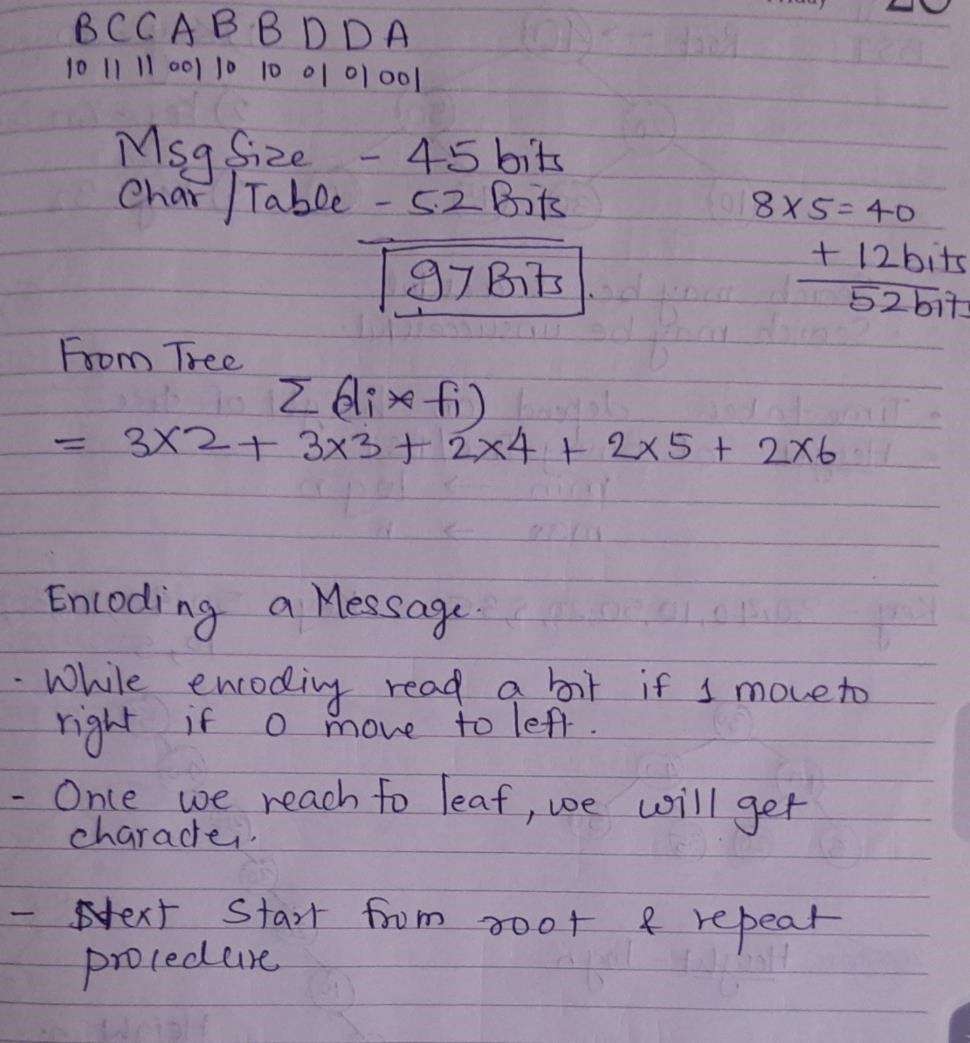 B C C A B B D D A
10 11 11 001 10 10 01 01 001
Msg Size - 45 bits
Char / Table - 52 Bits
8 x 5 = 40
+ 12 bits
52 bits
97 Bits.
From Tree
Σ (di * fi)
= 3x2 + 3x3 + 2x4 + 2x5 + 2x6
Encoding a Message.
- While encoding read a bit if 1 move to
right if 0 move to left.
- Once we reach to leaf, we will get
character.
- Next Start from root & repeat
procedure